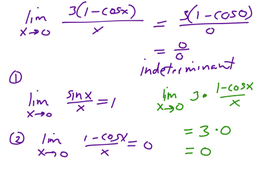 lim x→0 3(1-cosx)/x = 3(1-cos0)/0
= 0/0
indeterminant
①
lim x→0 sinx/x = 1
② lim x→0 1-cosx/x = 0
lim x→0 3 · 1-cosx/x
= 3·0
= 0